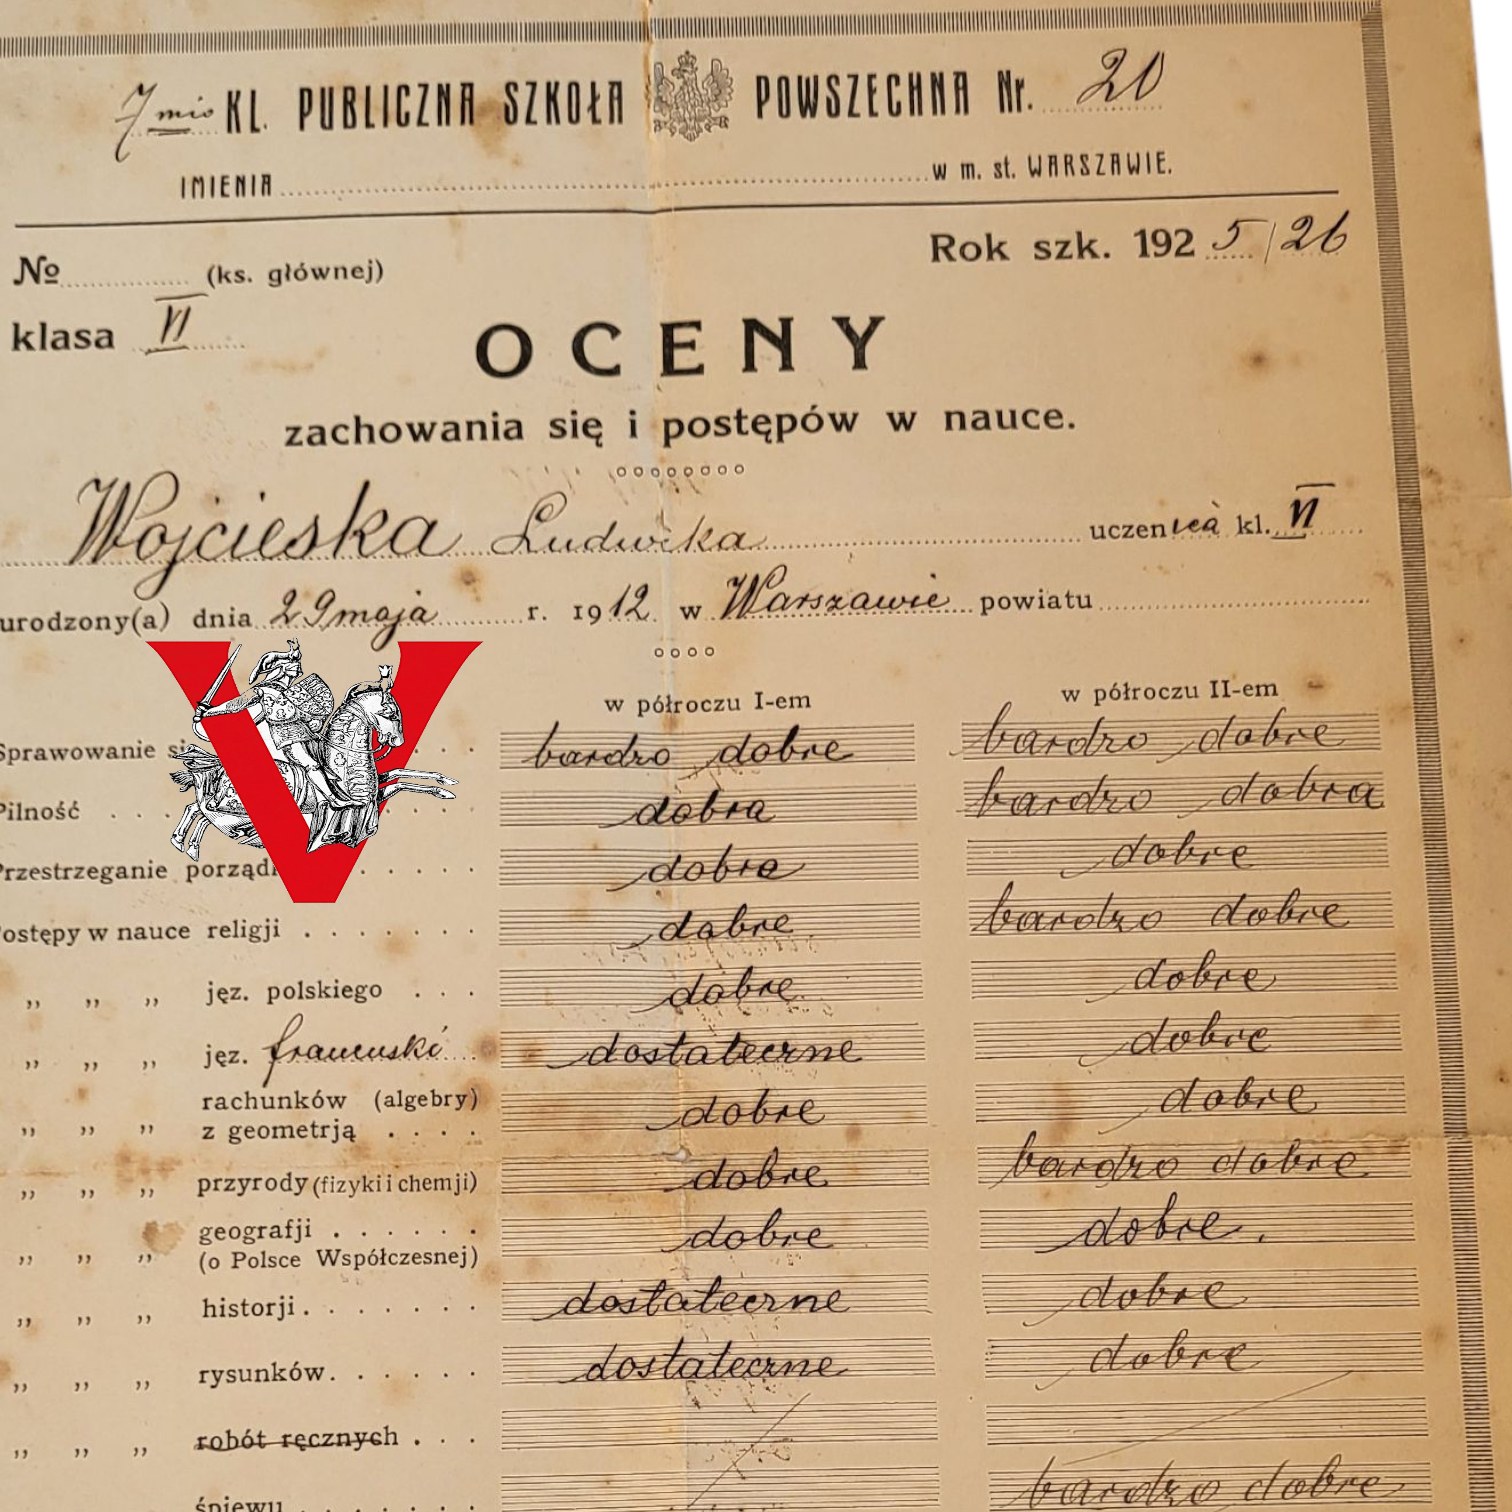 7mio KL. PUBLICZNA SZKOŁA POWSZECHNA Nr. 20
IMIENIA w m. st. WARSZAWIE.
Rok szk. 1925/26
№ (ks. głównej)
klasa VI
OCENY
zachowania się i postępów w nauce.
Wojcieska Ludwika uczenica kl. VI
urodzony(a) dnia 29 maja r. 1912 w Warszawie powiatu
w półroczu I-em w półroczu II-em
Sprawowanie si bardzo dobre bardzo dobre
V
Pilność dobra bardzo dobra
Przestrzeganie porząd dobre dobre
ostępy w nauce religji dobre bardzo dobre
„ „ „ jęz. polskiego dobre dobre
„ „ „ jęz. francuski dostateczne dobre
rachunków (algebry)
„ „ „ z geometrją dobre dobre
„ „ „ przyrody (fizyki i chemji) dobre bardzo dobre
geografji dobre dobre.
„ „ „ (o Polsce Współczesnej)
„ „ „ historji dostateczne dobre
„ „ „ rysunków dostateczne dobre
„ „ „ robót ręcznych
śpiewu bardzo dobre